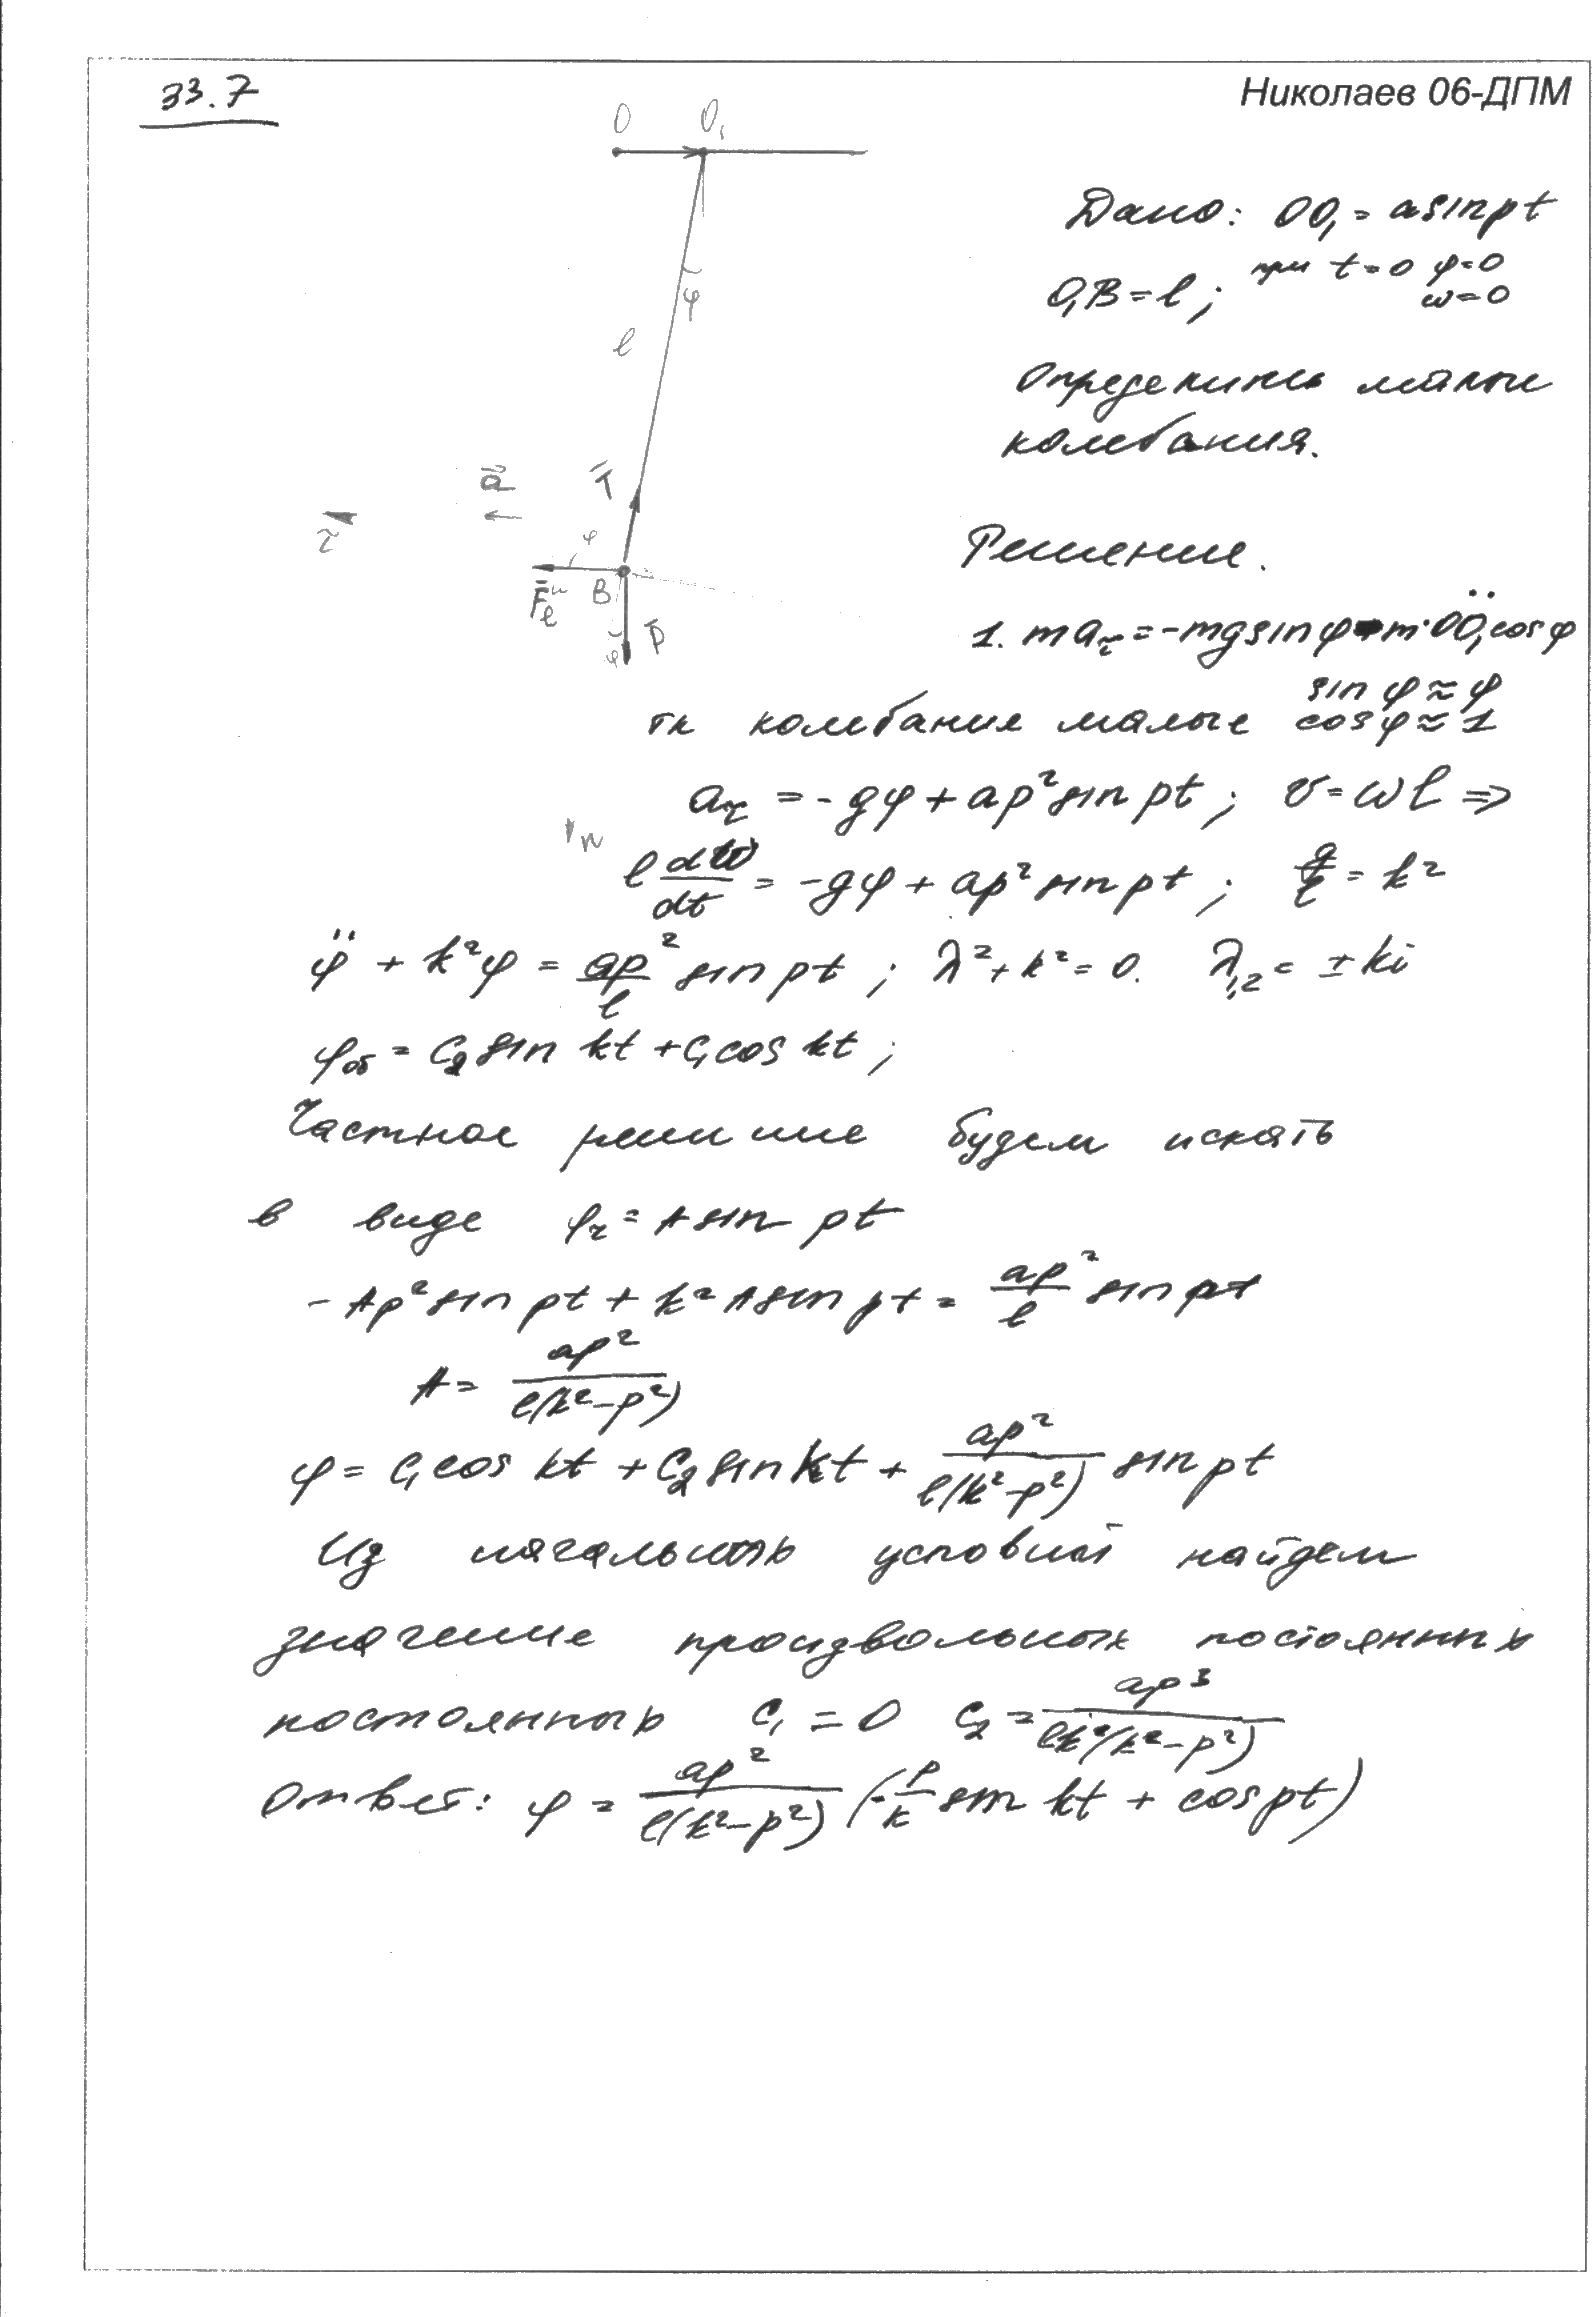 33.7
Николаев 06-ДПМ
O O₁
Дано: OO₁ = a sin pt
O₁B = l; при t=0 φ=0
ω=0
φ
l
Определить малые
колебания.
a⃗ T̄
τ φ
Решение.
F̄ₑᵘ B φ P̄
1. maτ = -mg sin φ - m·ÖO₁ cos φ
тк колебание малые sin φ ≈ φ
cos φ ≈ 1
aτ = -gφ + ap² sin pt; v = ωl ⇒
n
l dω/dt = -gφ + ap² sin pt; g/l = k²
φ̈ + k²φ = ap²/l sin pt; λ² + k² = 0. λ₁,₂ = ± ki
φоб = C₂ sin kt + C₁ cos kt;
Частное решение будем искать
в виде φч = A sin pt
-Ap² sin pt + k² A sin pt = ap²/l sin pt
A = ap²/l(k²-p²)
φ = C₁ cos kt + C₂ sin kt + ap²/l(k²-p²) sin pt
Из начальных условий найдем
значение произвольных постоянных
постоянных C₁ = 0 C₂ = ap³/lk²(k²-p²)
Ответ: φ = ap²/l(k²-p²) (-p/k sin kt + cos pt)